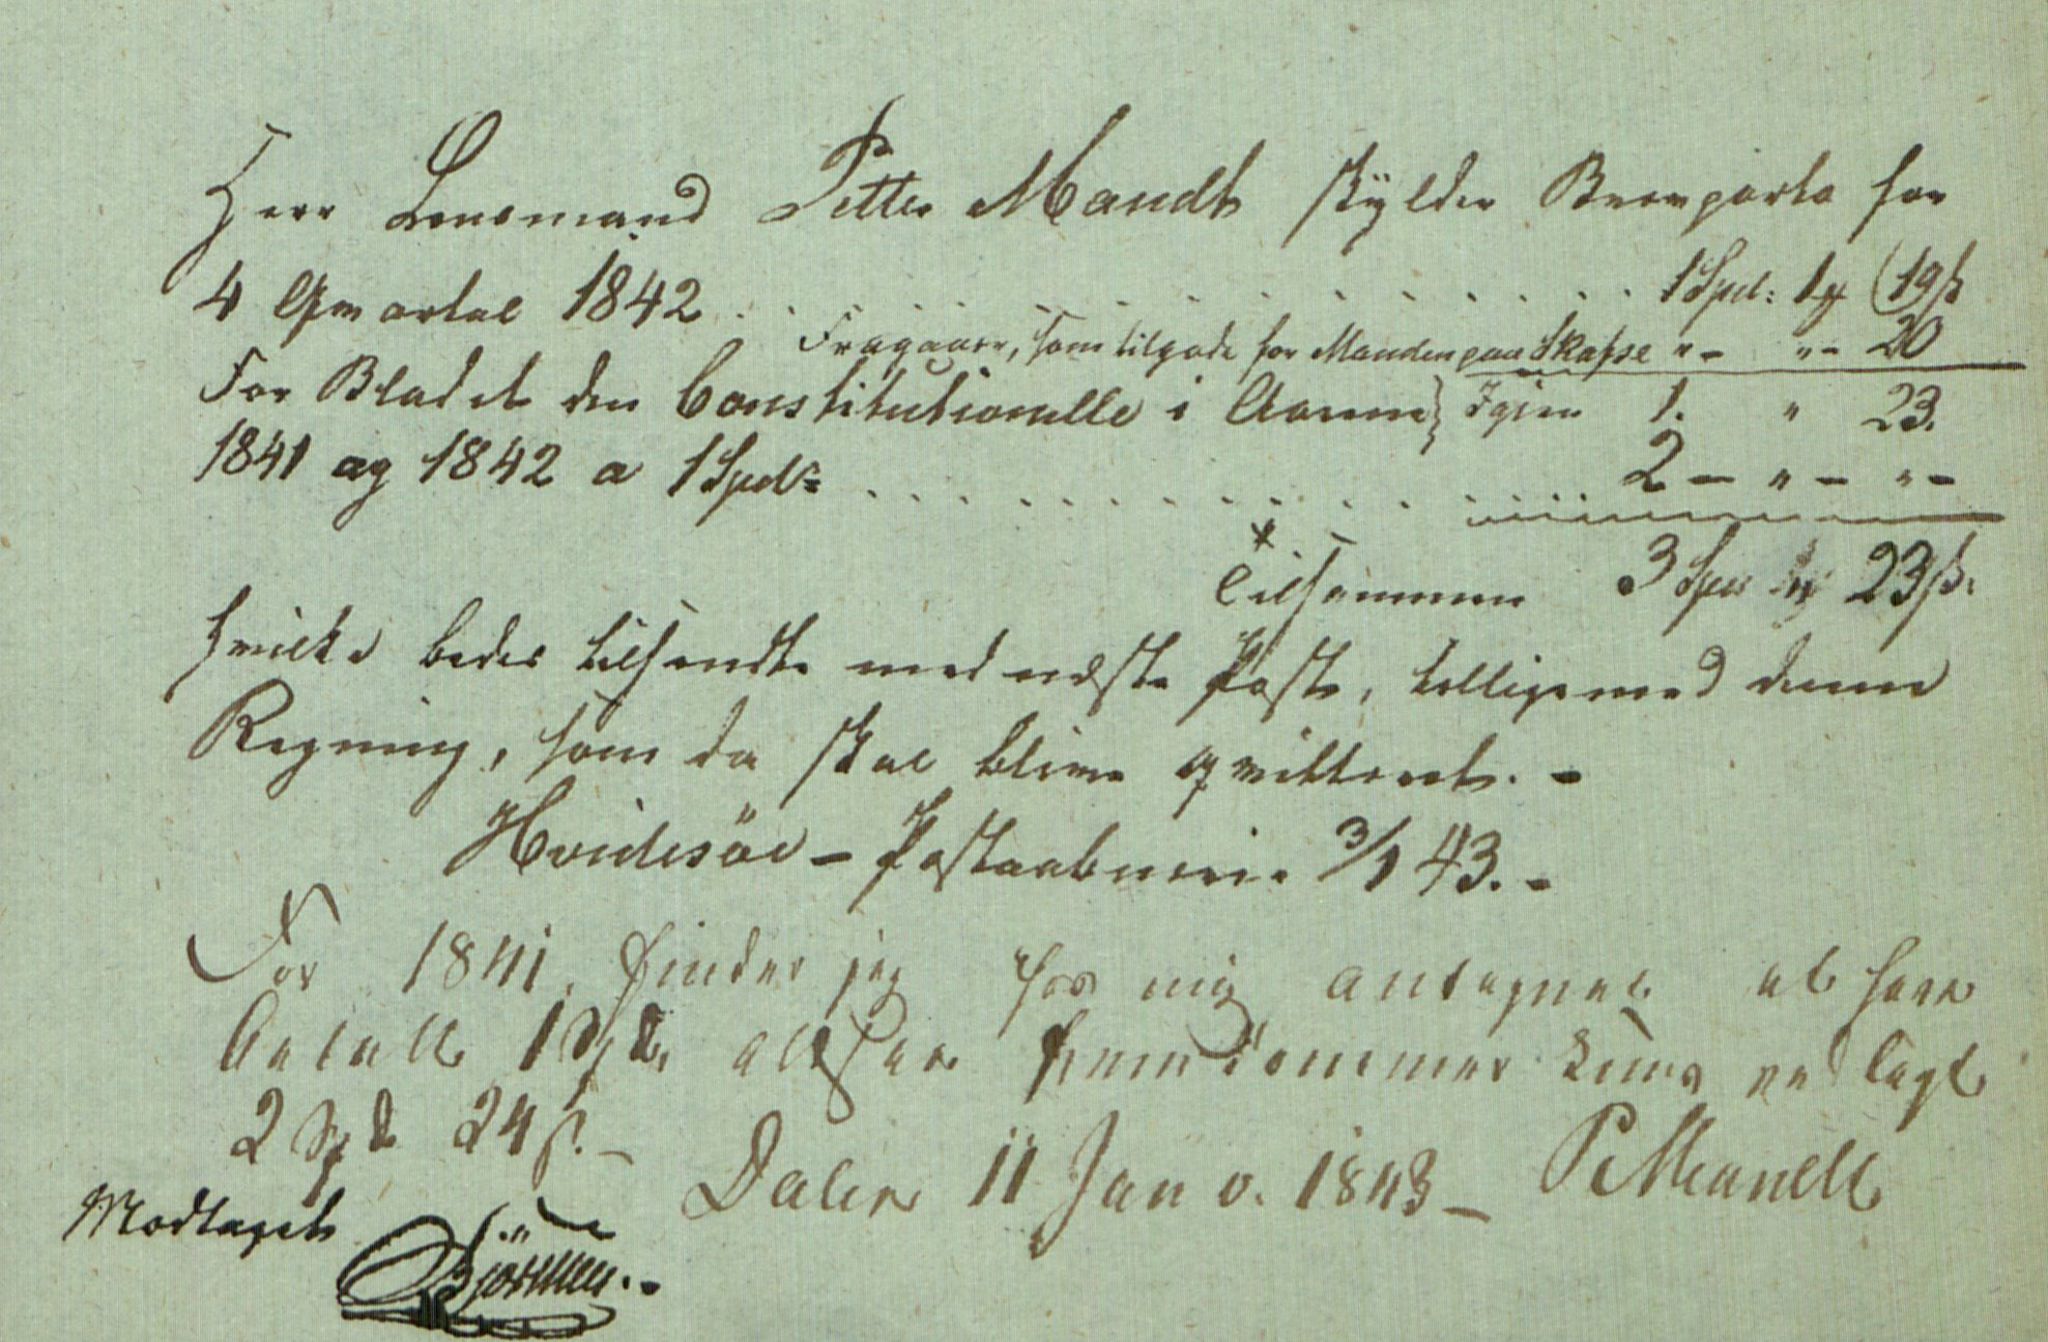 Herr Lensmand Petter Mandt skylder Brevporto for
4 Qvartal 1842 . . . . . . . . . . . . . 1 Spd: 1 ℔ 19 ß
Fragaaer, som tilgode for Manden paa Skafse "- "- 20
For Bladet den Constitutionelle i Aarene Igjen 1. " 23.
1841 og 1842 a 1 Spd: . . . . . . . . . . 2 - " - " -
Tilsammen 3 Spd " 23 ß.
hvilke bedes tilsendte med næste Post, tilligemed denne
Regning, som da skal blive qvitteret. -
Hvidesöe - Postaabnerie 3/1 43. -
For 1841, finder jeg hos mig antegnet at have
betalt 1 Spd, altsaa fremkommer kuns vedlagt
2 Spd 24 ß. -
Dalen 11 Januv. 1843 - P Mandt
Modtaget
Björnsen. -